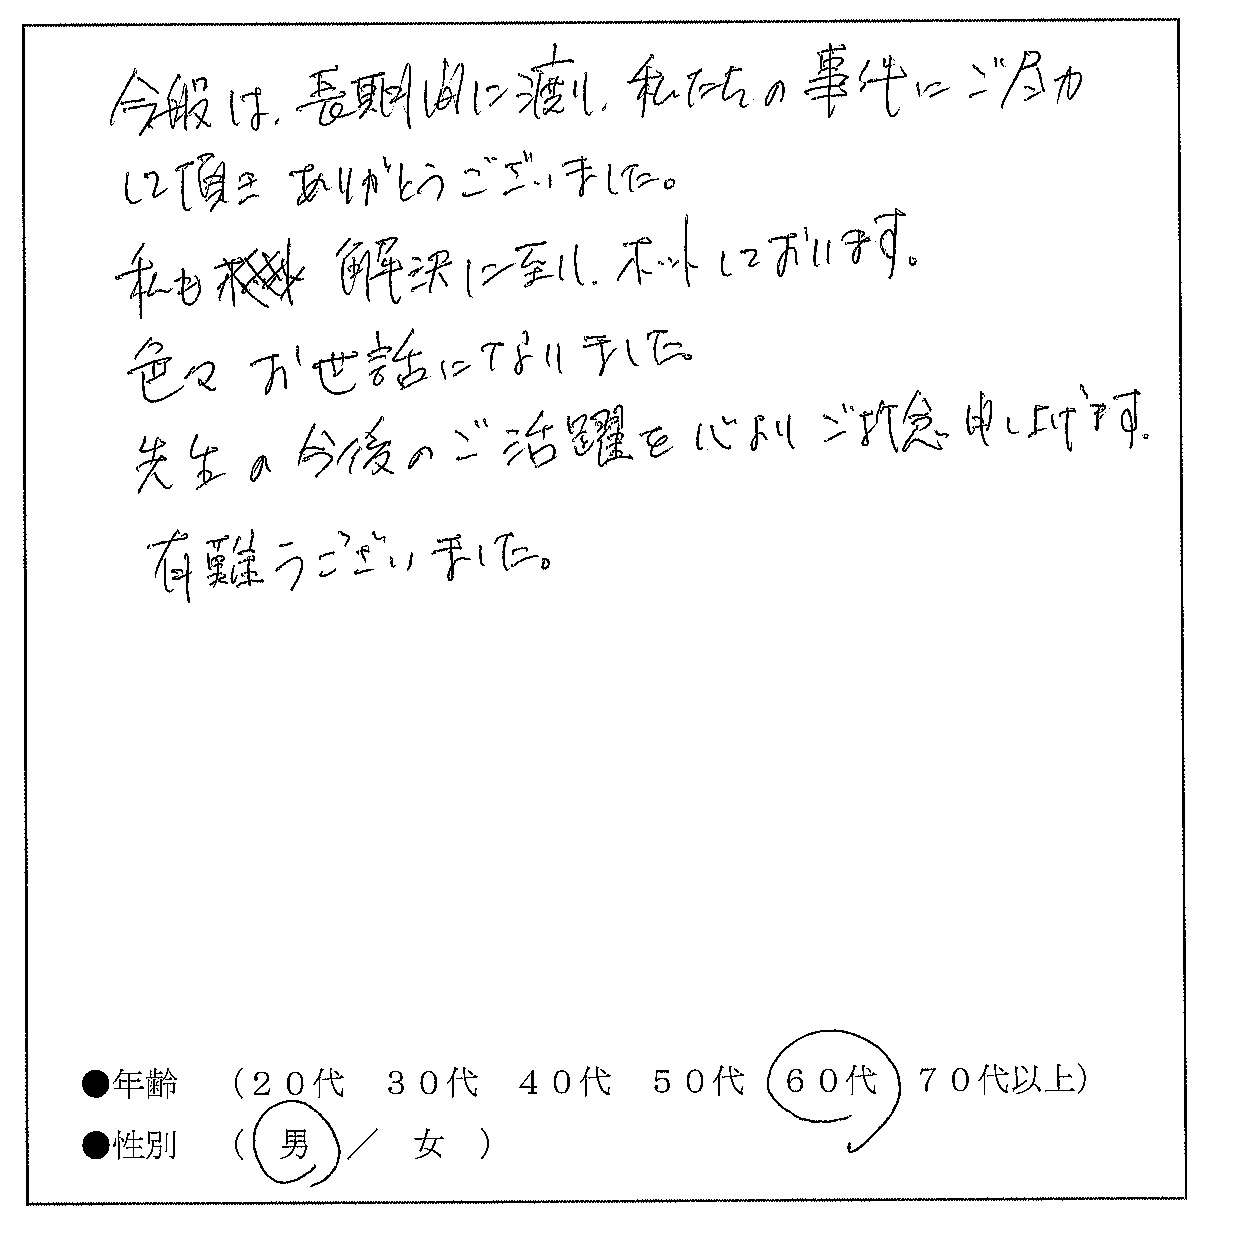 今般は、長期間に渡り、私たちの事件にご尽力
して頂き ありがとうございました。
私も 解決に至り、ホットしております。
色々 お世話になりました。
先生の今後のご活躍を心よりご祈念申し上げます。
有難うございました。
●年齢 （２０代 ３０代 ４０代 ５０代 ６０代 ７０代以上）
●性別 （ 男 ／ 女 ）